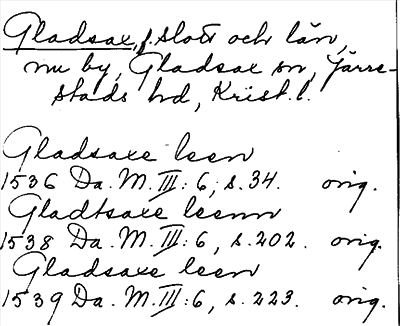 Gladsax, f. slott och län,
nu by, Gladsax sn, Järre-
stads hd, Krist. l.
Gladsaxe leen
1536 Da. M. III: 6, s. 34. orig.
Gladtsaxe leenn
1538 Da. M. III: 6, s. 202. orig.
Gladsaxe leen
1539 Da. M. III: 6, s. 223. orig.